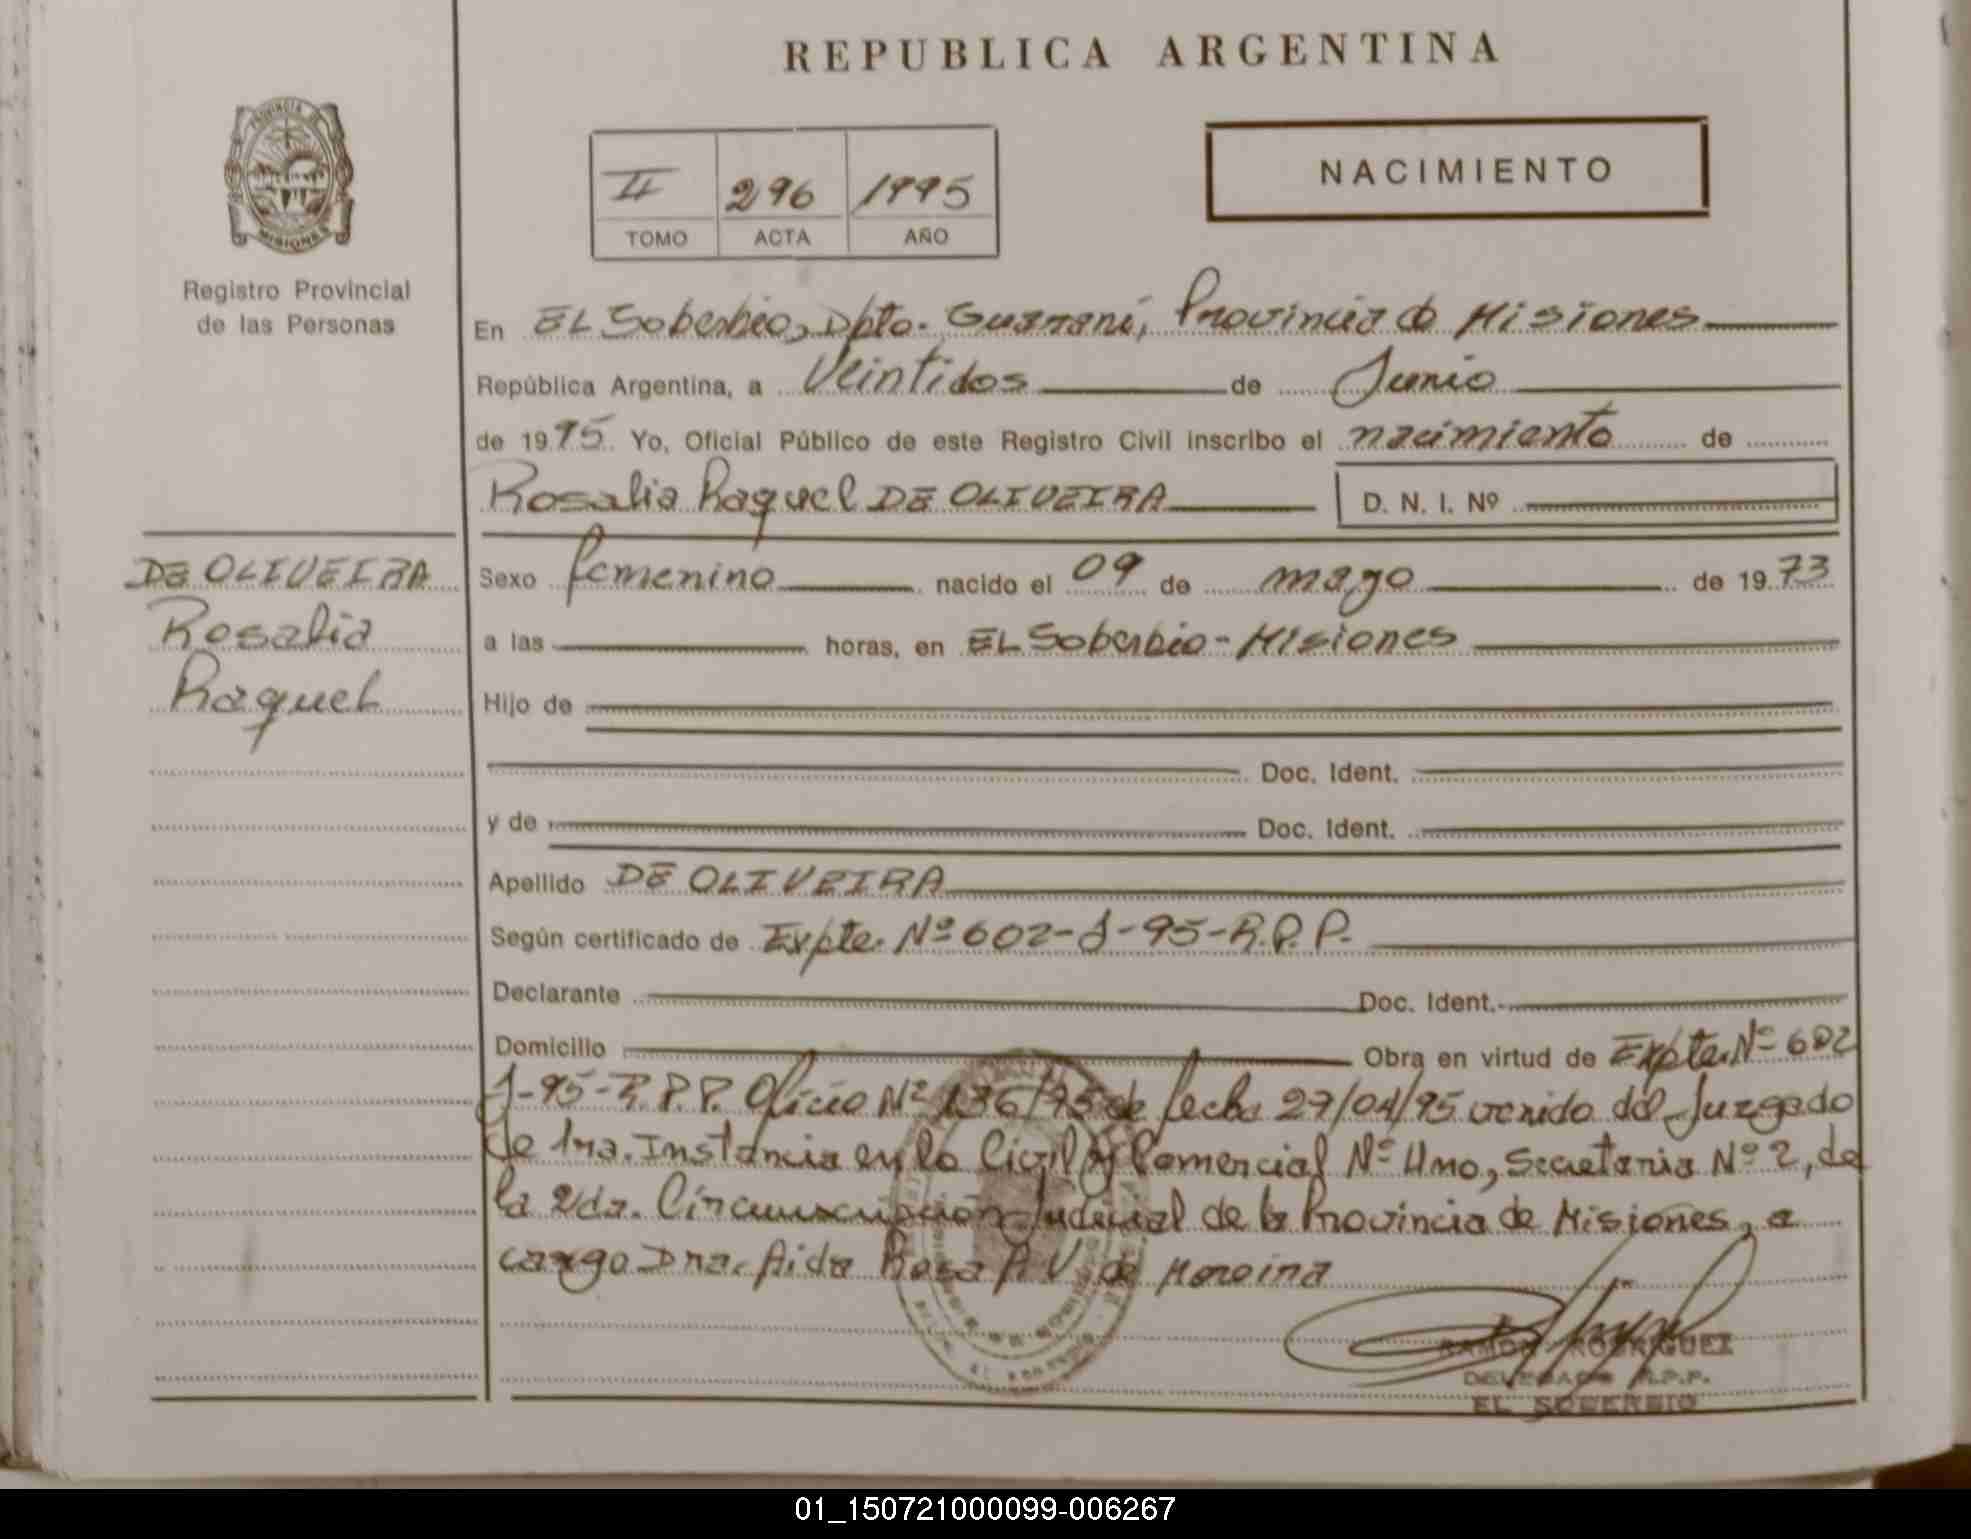 REPUBLICA ARGENTINA
PROVINCIA DE
MISIONES
Registro Provincial
de las Personas
II 296 1995
TOMO ACTA AÑO
NACIMIENTO
En EL Soberbio, Dpto. Guaraní, Provincia de Misiones
República Argentina, a Veintidos de Junio
de 1995. Yo, Oficial Público de este Registro Civil inscribo el nacimiento de
Rosalia Raquel DE OLIVEIRA D. N. I. Nº
DE OLIVEIRA
Rosalia
Raquel
Sexo femenino nacido el 09 de mayo de 1973
a las horas, en EL Soberbio - Misiones
Hijo de
Doc. Ident.
y de Doc. Ident.
Apellido DE OLIVEIRA
Según certificado de Expte. Nº 602-J-95-R.P.P.
Declarante Doc. Ident.
Domicilio Obra en virtud de Expte. Nº 602
J-95-R.P.P. Oficio Nº 136/95 de fecha 27/04/95 venido del Juzgado
de 1ra. Instancia en lo Civil y Comercial Nº Uno, Secretaria Nº 2, de
la 2da. Circunscripción Judicial de la Provincia de Misiones, a
cargo Dra. Aida Rosa A. V. de Moreira
RAMON RODRIGUEZ
DELEGADO R.P.P.
EL SOBERBIO
01_150721000099-006267